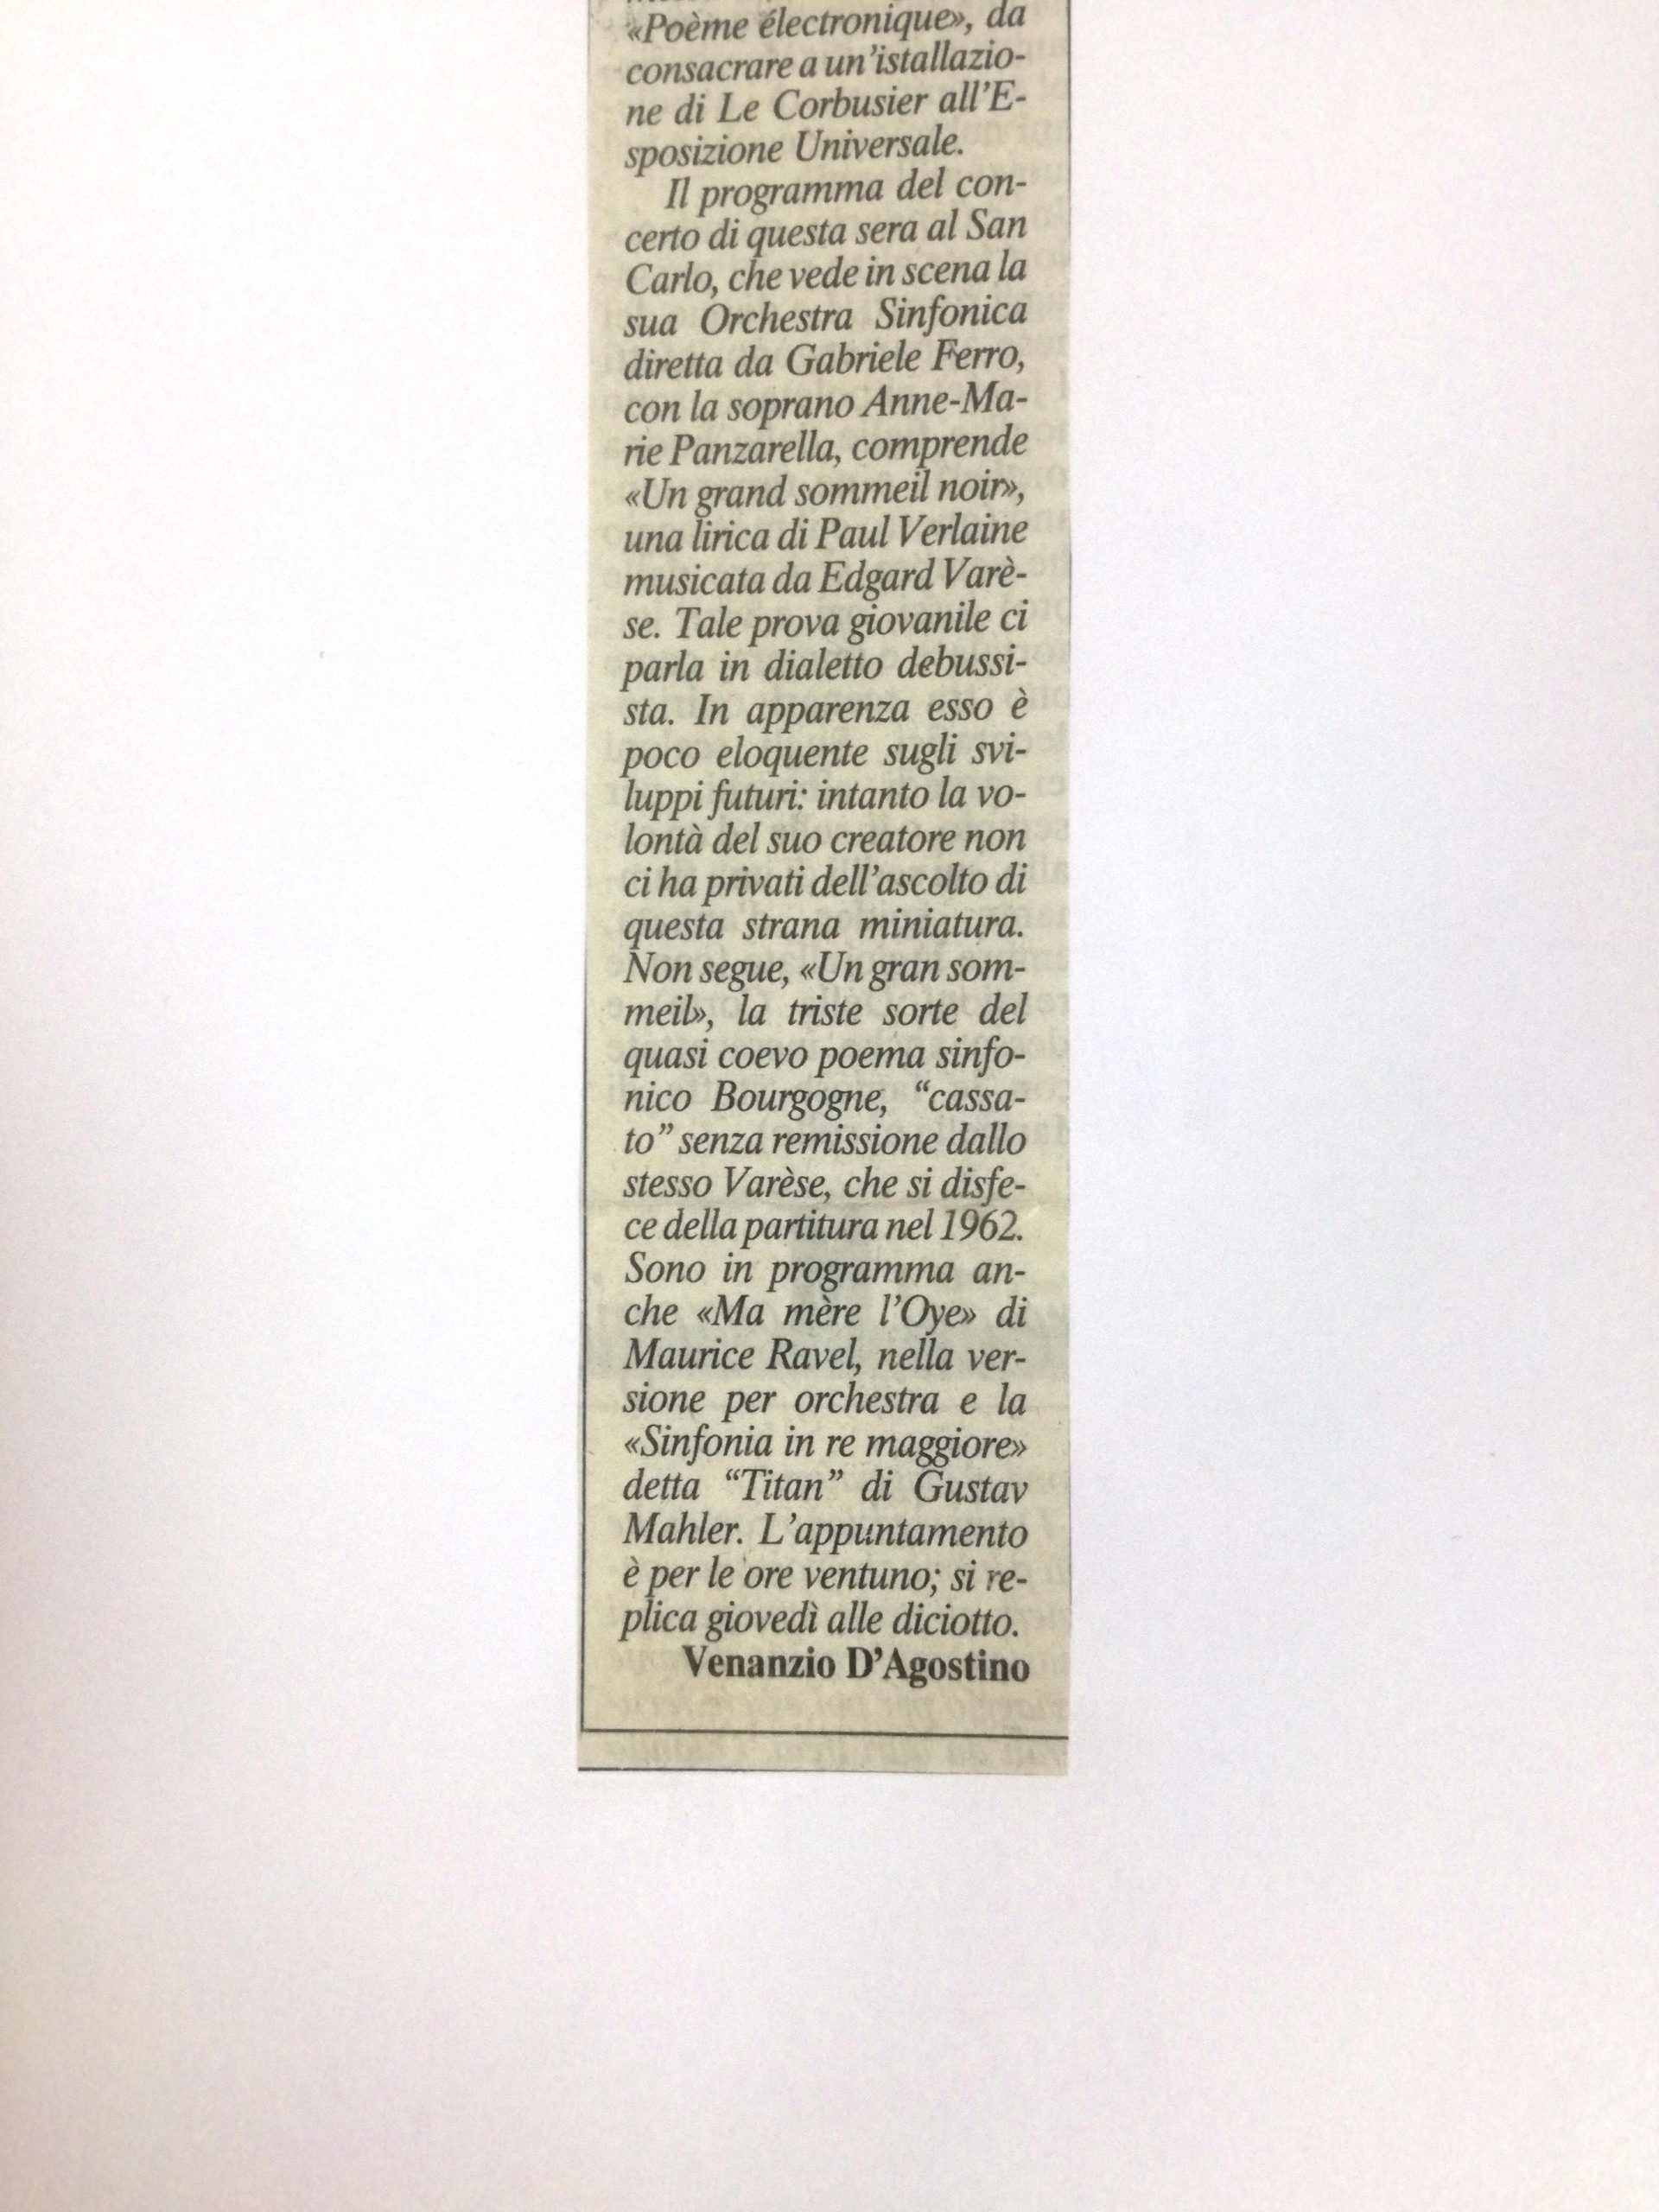 «Poème électronique», da
consacrare a un'istallazio-
ne di Le Corbusier all'E-
sposizione Universale.
Il programma del con-
certo di questa sera al San
Carlo, che vede in scena la
sua Orchestra Sinfonica
diretta da Gabriele Ferro,
con la soprano Anne-Ma-
rie Panzarella, comprende
«Un grand sommeil noir»,
una lirica di Paul Verlaine
musicata da Edgard Varè-
se. Tale prova giovanile ci
parla in dialetto debussi-
sta. In apparenza esso è
poco eloquente sugli svi-
luppi futuri: intanto la vo-
lontà del suo creatore non
ci ha privati dell'ascolto di
questa strana miniatura.
Non segue, «Un gran som-
meil», la triste sorte del
quasi coevo poema sinfo-
nico Bourgogne, “cassa-
to” senza remissione dallo
stesso Varèse, che si disfe-
ce della partitura nel 1962.
Sono in programma an-
che «Ma mère l'Oye» di
Maurice Ravel, nella ver-
sione per orchestra e la
«Sinfonia in re maggiore»
detta “Titan” di Gustav
Mahler. L'appuntamento
è per le ore ventuno; si re-
plica giovedì alle diciotto.
Venanzio D'Agostino